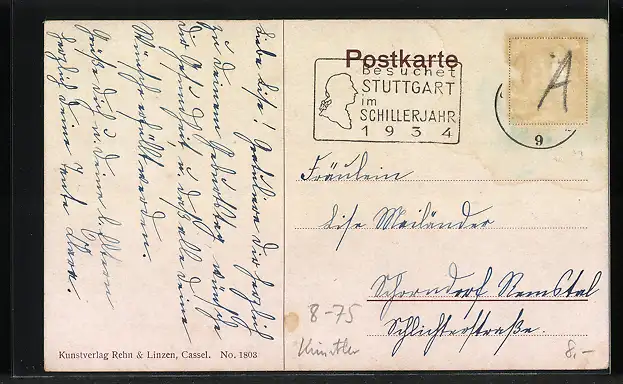 Liebe Lise! Gratuliere Dir herzlich
zu Deinem Geburtstag, wünsche
Dir Gesundheit u. daß alle Deine
Wünsche erfüllt werden.
Grüße Dich u. Deine l. Eltern
herzlich Deine Tante
Kunstverlag Rehn & Linzen, Cassel. No. 1803
Postkarte
Besuchet
STUTTGART
im
SCHILLERJAHR
1934
A
9
Fräulein
Lise Mailänder
Schorndorf Remstal
Schlichterstraße.
8-75
Künstler
8,-